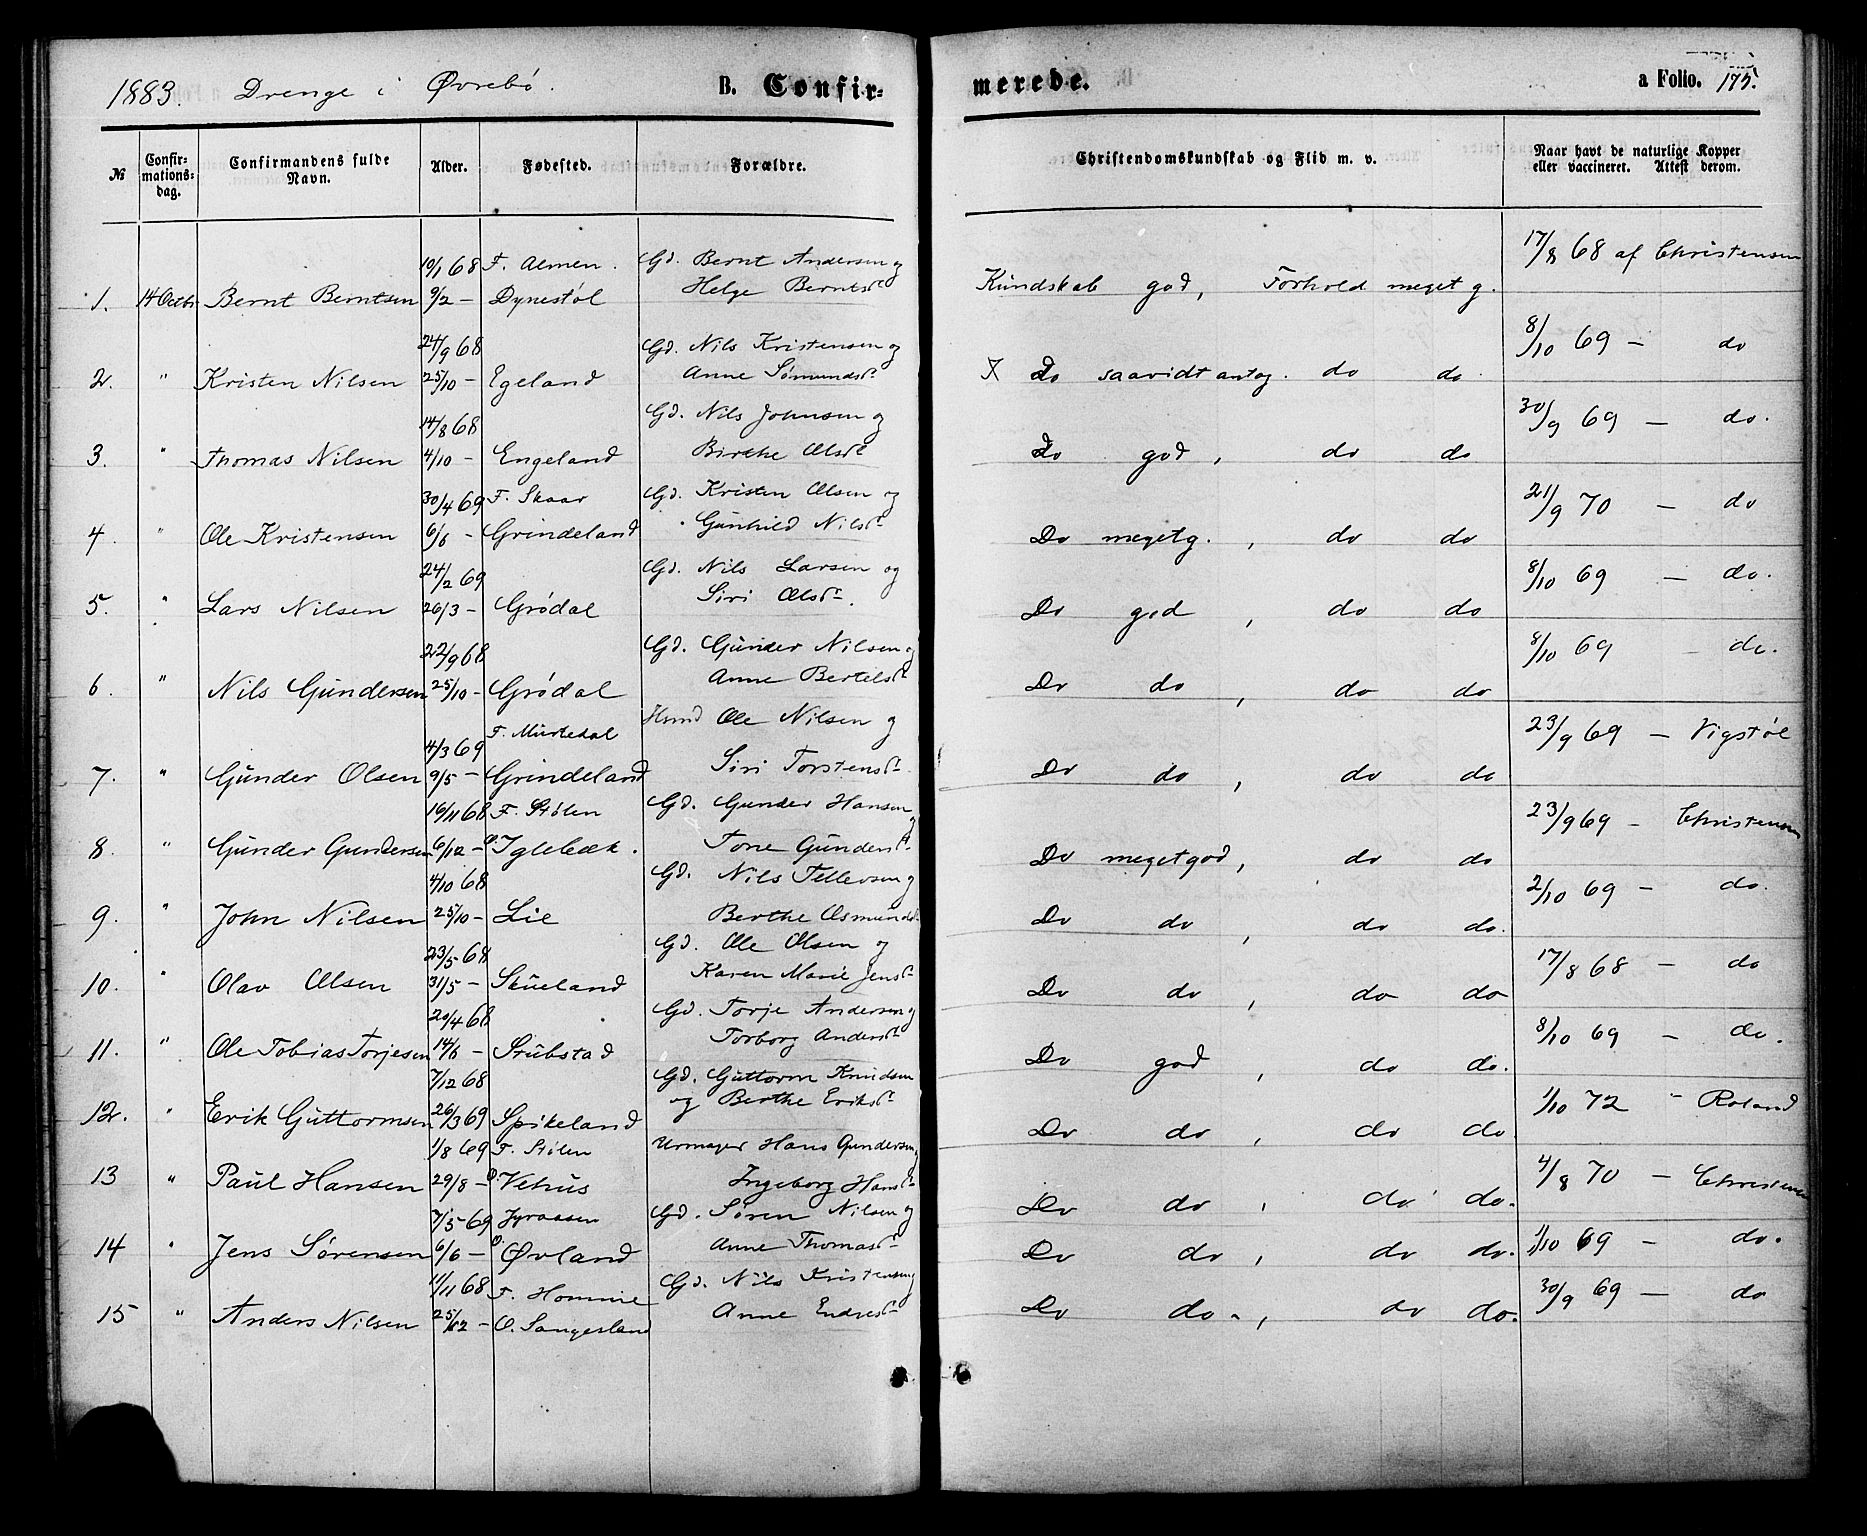 1883. Drenge i Øvrebø. B. Confirmerede. a Folio. 175.
№ Confirmationsdag. Confirmandens fulde Navn. Alder. Fødested. Forældre. Christendomskundskab og Flid m. v. Naar havt de naturlige Kopper eller vaccineret. Attest derom.
10/1 68 F. Almen. Gd. Bernt Andersen og 17/8 68 af Christensen
1. 14 Octbr Bernt Berntsen 9/2 — Dynestøl Helge Berntsdr Kundskab god, Forhold meget g.
24/9 68 Gd. Nils Kristensen og 8/10 69 — do
2. " Kristen Nilsen 25/10 — Egeland Anne Sømundsdr X Do saavidt antag. do do
14/8 68 Gd. Nils Johnsen og 30/9 69 — do.
3. " Thomas Nilsen 4/10 — Engeland Birthe Olsdr Do god, do do
30/4 69 F. Skaar Gd. Kristen Olsen og 21/9 70 — do
4. " Ole Kristensen 6/6 — Grindeland Gunhild Nilsdr Do meget g., do do
24/2 69 Gd. Nils Larsen og 8/10 69 — do.
5. " Lars Nilsen 26/3 — Grødal Siri Olsdr. Do god, do do
22/9 68 Gd. Gunder Nilsen og 8/10 69 — do.
6. " Nils Gundersen 25/10 — Grødal Anne Bertelsdr Do do, do do
4/3 69 F. Murtedal Husmd Ole Nilsen og 23/9 69 — Vigstøl
7. " Gunder Olsen 9/5 — Grindeland Siri Torstensdr Do do, do do
16/11 68 F. Stølen Gd. Gunder Hansen og 23/9 69 — Christensen
8. " Gunder Gundersen 6/12 — O. Iglebæk. Tone Gundersdr Do meget god, do do
4/10 68 Gd. Nils Tellevsen og 2/10 69 — do.
9. " John Nilsen 25/10 — Lie Berthe Osmundsdr Do do, do do.
23/5 68 Gd. Ole Olsen og 17/8 68 — do
10. " Olav Olsen 31/5 — Skueland Karen Marie Jensdr Do do, do do
20/4 68 Gd. Torje Andersen og 8/10 69 — do.
11. " Ole Tobias Torjesen 14/6 — Stubstad Torborg Andersdr Do god, do do.
7/12 68 Gd. Guttorm Knudsen 1/10 72 " Roland
12. " Erik Guttormsen 26/3 69 Spikeland og Berthe Eriksdr Do do, do do
1/8 69 F. Stølen Urmager Hans Gundersen og 4/8 70 — Christensen
13 " Paul Hansen 29/8 — O. Vehus Ingeborg Hansdr Do do, do do.
7/5 69 Gd. Søren Nilsen og 1/10 69 — do.
14 " Jens Sørensen 6/6 — O. Øvland Anne Thomasdr Do do, do do.
11/11 68 F. Homme Gd. Nils Kristensen og 30/9 69 — do
15 " Anders Nilsen 25/12 — O. Sangesland Anne Endresdr Do do, do do.